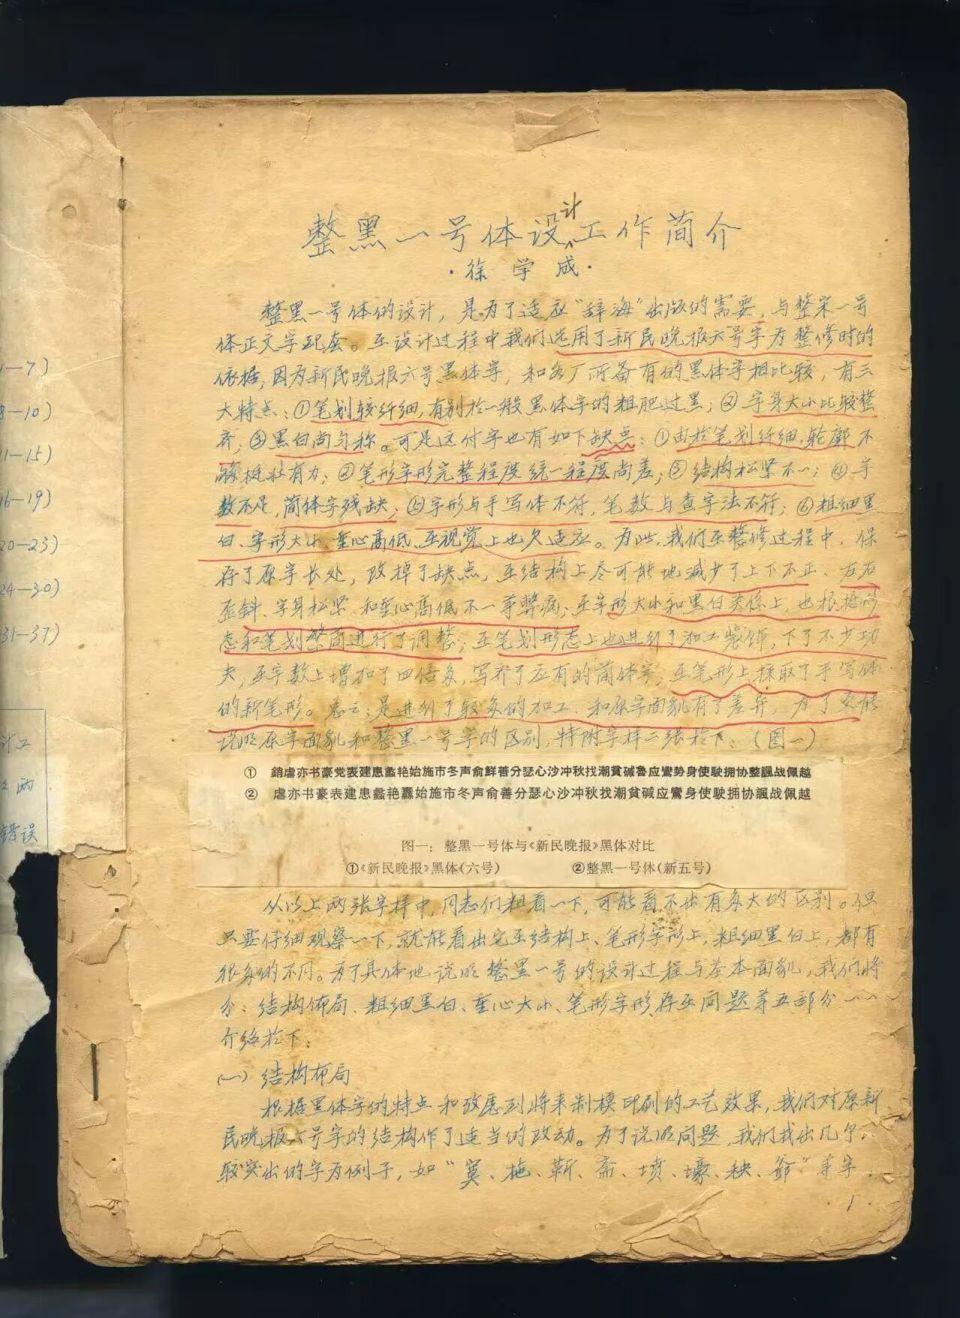 整黑一号体设计工作简介
·徐学成·
整黑一号体的设计，是为了适应“辞海”出版的需要，与整宋一号
体正文字配套。在设计过程中我们选用了新民晚报六号字为整修时的
依据，因为新民晚报六号黑体字，和各厂所备有的黑体字相比较，有三
大特点：①笔划较纤细，有别于一般黑体字的粗肥过黑；②字身大小比较整
齐，③黑白尚匀称。可是这付字也有如下缺点：①由于笔划纤细，轮廓不
够挺壮有力；②笔形字形完整程度统一程度尚差；③结构松紧不一；④字
数不足，简体字残缺；⑤字形与手写体不符，笔数与查字法不符；⑥粗细黑
白、字形大小、重心高低，在视觉上也欠适应。为此，我们在整修过程中，保
存了原字长处，改掉了缺点，在结构上尽可能地减少了上下不正、左右
歪斜、字身松紧和重心高低不一等弊病；在字形大小和黑白关系上，也根据形
态和笔划繁简进行了调整；在笔划形态上也进行了加工装饰，下了不少功
夫，在字数上增加了四倍多，写齐了应有的简体字，在笔形上采取了手写体
的新笔形。总之：是进行了较多的加工，和原字面貌有了差异，为了更能
说明原字面貌和整黑一号字的区别，特附字样二张于下：（图一）
① 銷虐亦书豪党表建患蠡艳始施市冬声俞鮮善分瑟心沙冲秋找潮貧碱魯应鸞勢身使駛拥协整飄战佩越
② 虐亦书豪表建患蠡艳矗始施市冬声俞善分瑟心沙冲秋找潮貧碱应鸞身使駛拥协飄战佩越
图一：整黑一号体与《新民晚报》黑体对比
①《新民晚报》黑体(六号) ②整黑一号体(新五号)
从以上两张字样中，同志们粗看一下，可能看不出有多大的区别。但
只要仔细观察一下，就能看出它在结构上、笔形字形上，粗细黑白上，都有
很多的不同。为了具体地说明整黑一号的设计过程与基本面貌，我们将
分：结构布局、粗细黑白、重心大小、笔形字形、存在问题等五部分
介绍于下：
(一) 结构布局
根据黑体字的特点和考虑到将来制模印刷的工艺效果，我们对原新
民晚报六号字的结构作了适当的改动。为了说明问题，我们找出几个
较突出的字为例子，如“冀、拖、靳、斋、愤、壕、秧、爺”等字，
1.
-7)
8-10)
11-15)
16-19)
20-23)
24-30)
31-37)
计工
两
错误